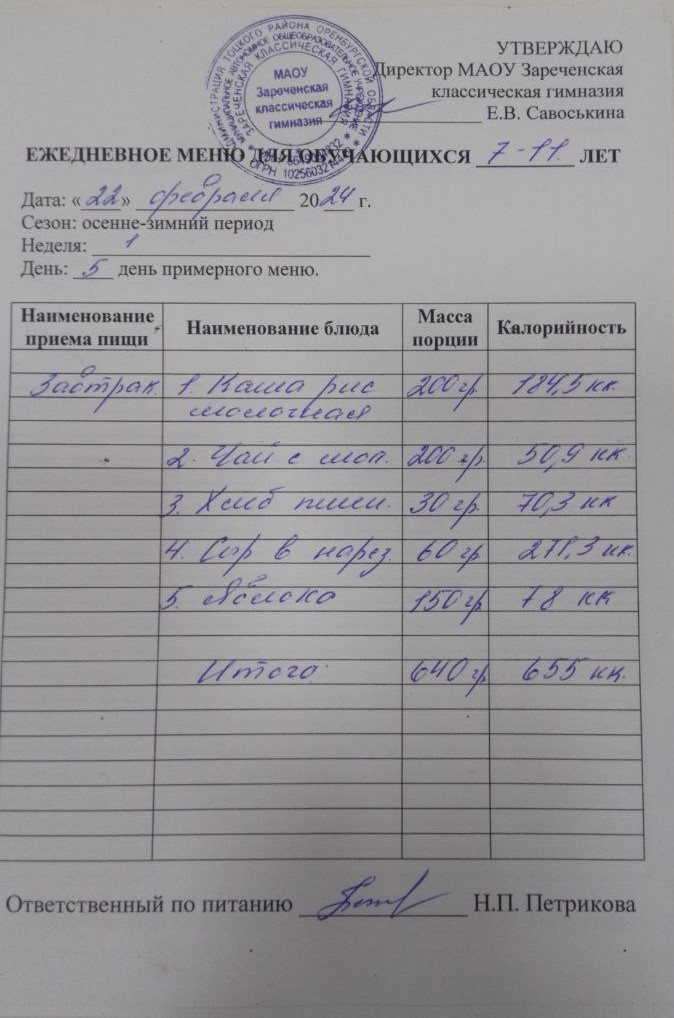 УТВЕРЖДАЮ
Директор МАОУ Зареченская
классическая гимназия
Е.В. Савоськина
АДМИНИСТРАЦИЯ ТОЦКОГО РАЙОНА ОРЕНБУРГСКОЙ ОБЛАСТИ
МУНИЦИПАЛЬНОЕ АВТОНОМНОЕ ОБЩЕОБРАЗОВАТЕЛЬНОЕ УЧРЕЖДЕНИЕ
ЗАРЕЧЕНСКАЯ КЛАССИЧЕСКАЯ ГИМНАЗИЯ
МАОУ
Зареченская
классическая
гимназия
ОГРН
ЕЖЕДНЕВНОЕ МЕНЮ ДЛЯ ОБУЧАЮЩИХСЯ 7-11 ЛЕТ
Дата: «22» февраля 2024 г.
Сезон: осенне-зимний период
Неделя: 1
День: 5 день примерного меню.
Наименование приема пищи Наименование блюда Масса порции Калорийность
Завтрак 1. Каша рис 200 гр. 184,5 кк.
молочная
2. Чай с мол. 200 гр. 50,9 кк.
3. Хлеб пшен. 30 гр. 70,3 кк
4. Сыр в нарез. 60 гр. 271,3 кк.
5. Яблоко 150 гр. 78 кк
Итого: 640 гр. 655 кк.
Ответственный по питанию Н.П. Петрикова